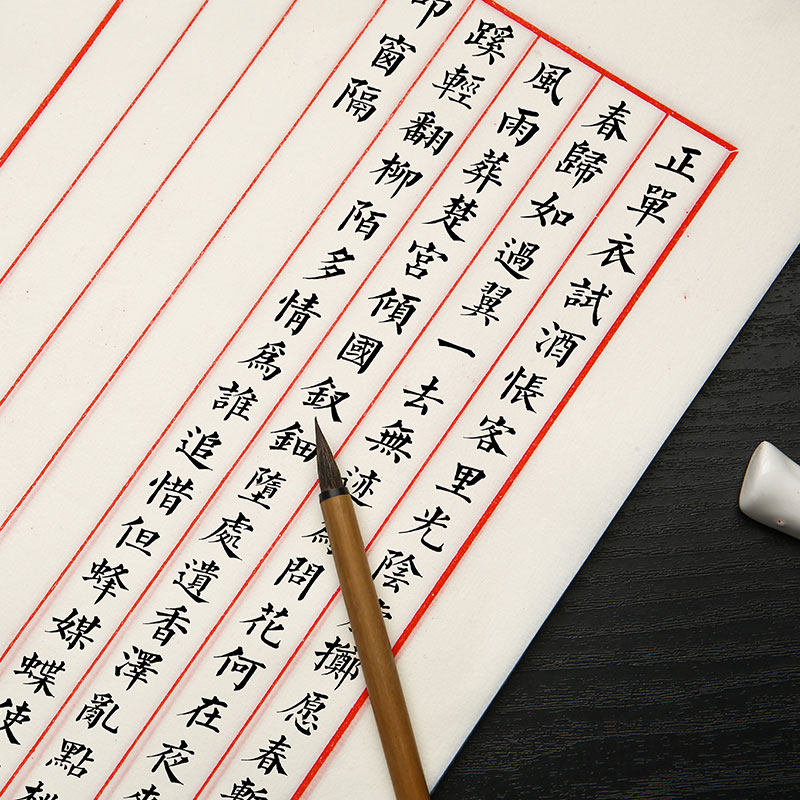 正單衣試酒悵客里光陰擲愿春暫
春歸如過翼一去無迹為問花何在夜來
風雨葬楚宮傾國釵鈿墮處遺香澤亂點桃
蹊輕翻柳陌多情為誰追惜但蜂媒蝶使
叩窗隔